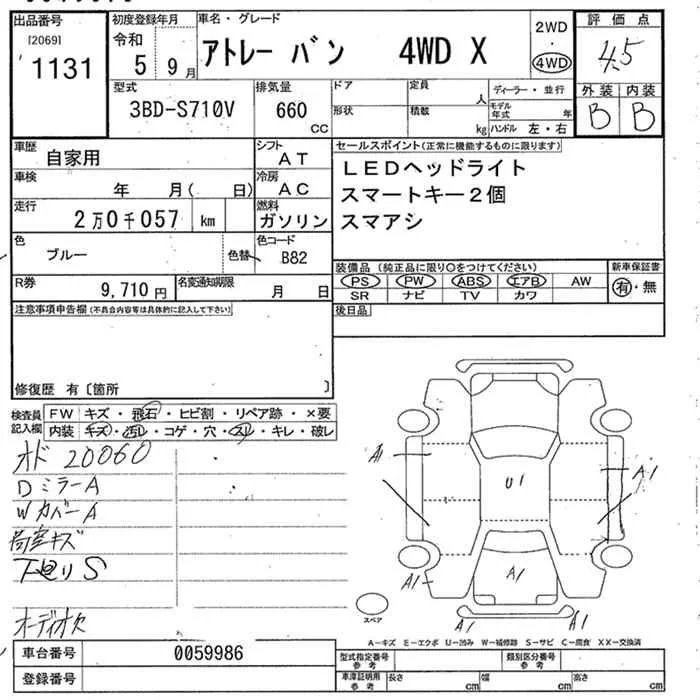 出品番号
[2069]
1131
初度登録年月
令和
5 9月
車名・グレード
アトレー バン 4WD X
2WD
・
4WD
評価点
4.5
外装 内装
B B
型式
3BD-S710V
排気量
660
CC
ドア
形状
定員
人
積載
kg
ディーラー・並行
モデル年式 年
ハンドル 左・右
車歴
自家用
シフト
AT
車検
年 月( 日)
冷房
AC
走行
2万0千057 km
燃料
ガソリン
色
ブルー
色替
色コード
B82
R券
9,710円
名変通知期限
月 日
セールスポイント(正常に機能するものに限ります)
LEDヘッドライト
スマートキー2個
スマアシ
装備品(純正品に限り○をつけてください)
新車保証書
PS PW ABS エアB AW
SR ナビ TV カワ
有・無
後日品
注意事項申告欄(不具合内容等は具体的に記入して下さい)
修復歴 有〔箇所 〕
検査員
記入欄
FW キズ・飛石・ヒビ割・リペア跡・×要
内装 キズ・汚れ・コゲ・穴・スレ・キレ・破レ
オド 20060
DミラーA
WカバーA
荷室キズ
下廻りS
オーディオ欠
A1
A1
U1
A1
A1
A1
A1
スペア
A-キズ E-エクボ U-凹み W-補修跡 S-サビ C-腐食 XX-交換済
車台番号
0059986
登録番号
型式指定番号
参考
類別区分番号
参考
車庫証明用
参考
長さ cm
幅 cm
高さ cm